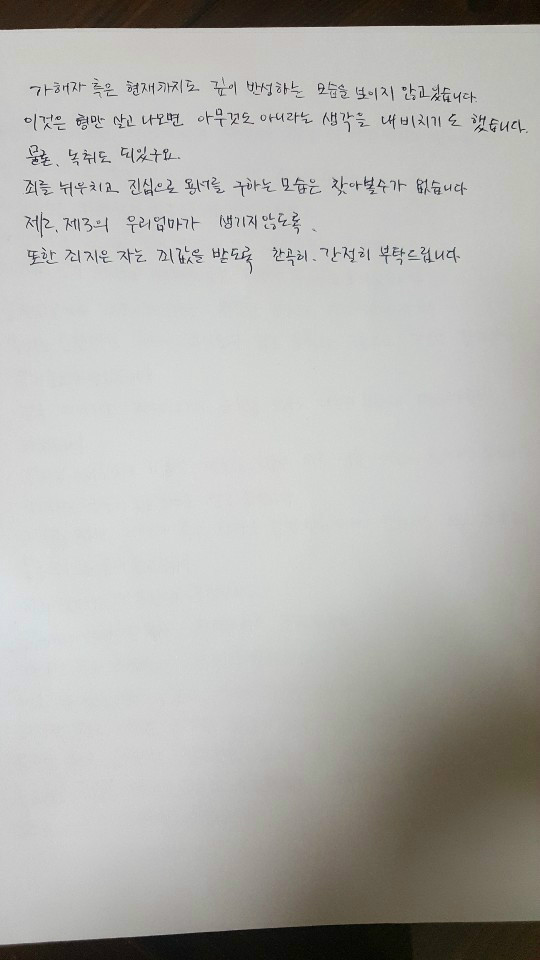 가해자 측은 현재까지도 깊이 반성하는 모습을 보이지 않고있습니다.
이것은 형만 살고 나오면 아무것도 아니라는 생각을 내비치기도 했습니다.
물론, 녹취도 되있구요.
죄를 뉘우치고 진심으로 용서를 구하는 모습은 찾아볼수가 없습니다
제2, 제3의 우리엄마가 생기지않도록,
또한 죄지은 자는 죄값을 받도록 간곡히, 간절히 부탁드립니다.